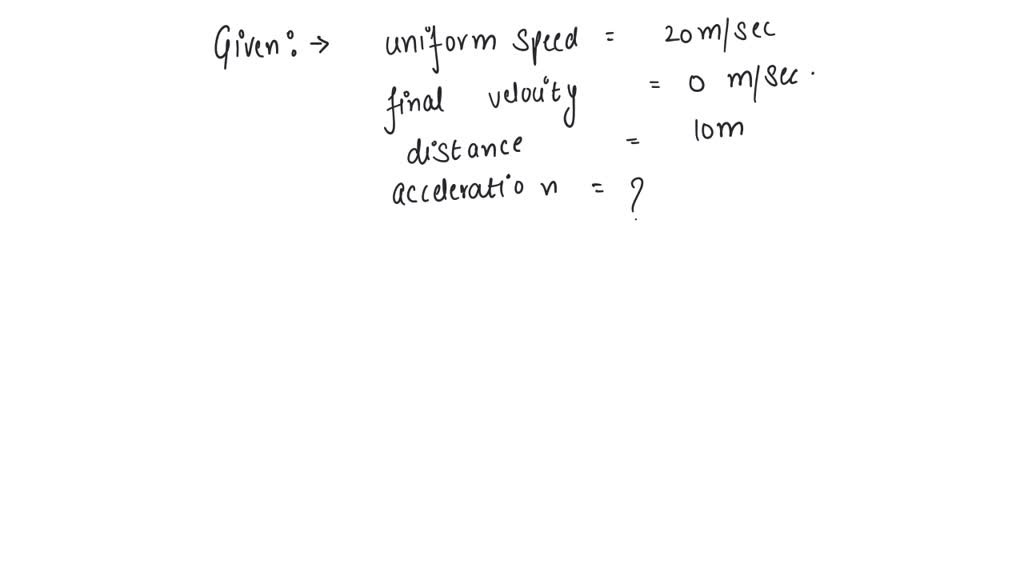 Given: → uniform speed = 20 m/sec
final velocity = 0 m/sec.
distance = 10m
acceleration = ?